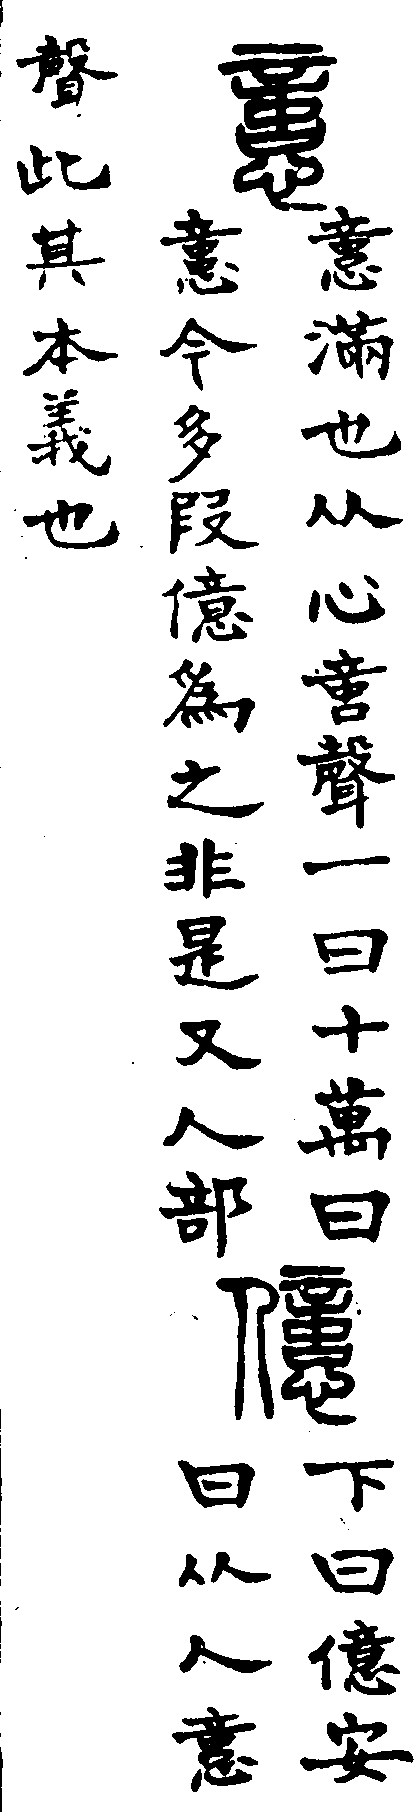 𢡃
𢡃滿也从心𠶷聲一曰十萬曰
𢡃今多叚億為之非是又人部
億
下曰億安
曰从人𢡃
聲此其本義也